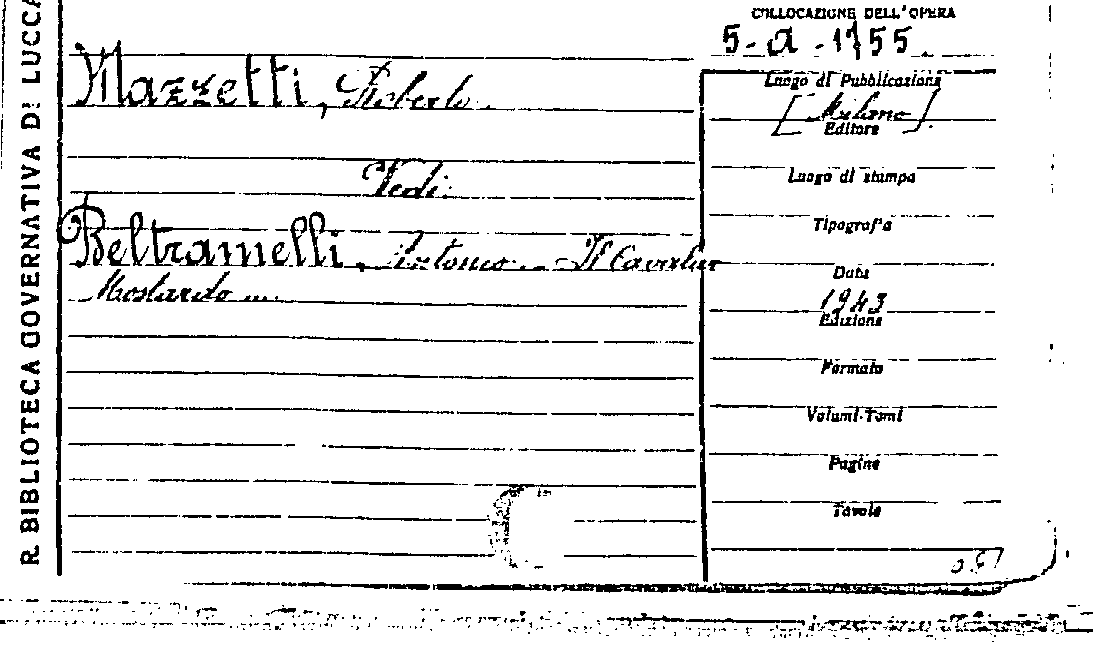 R. BIBLIOTECA GOVERNATIVA DI LUCCA
COLLOCAZIONE DELL'OPERA
5-a-1755.
Mazzetti, Roberto
Vedi:
Beltramelli, Antonio - Il Cavalier
Mostardo ...
Luogo di Pubblicazione
[Milano].
Editore
Luogo di stampa
Tipografia
Data
1943
Edizione
Formato
Volumi-Tomi
Pagine
Tavole